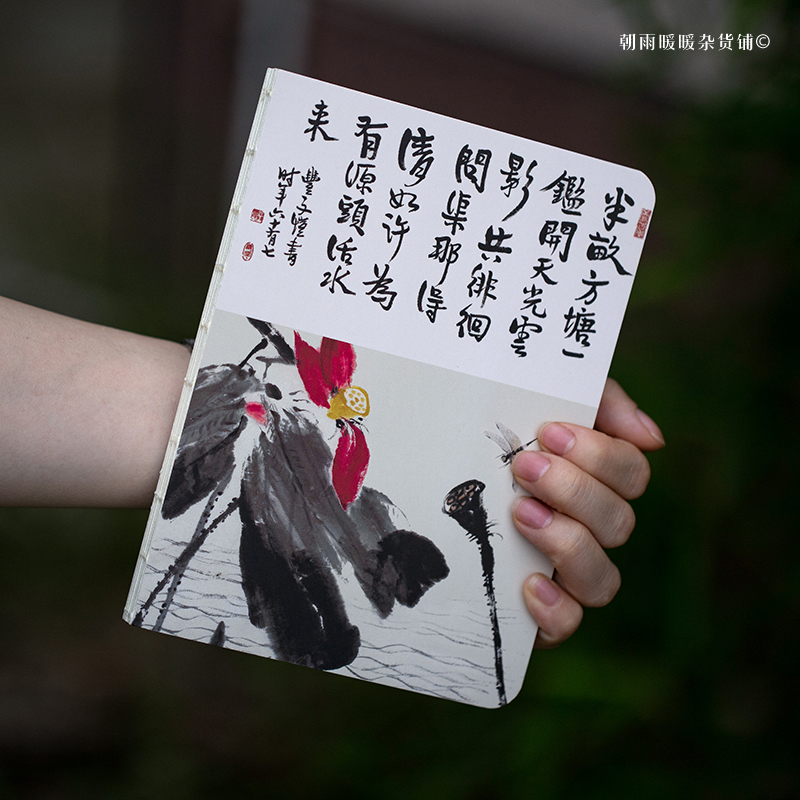 朝雨暖暖杂货铺©
半畝方塘一
鑑開天光雲
影共徘徊
問渠那得
清如許為
有源頭活水
来
豐子愷書
时年六十有七